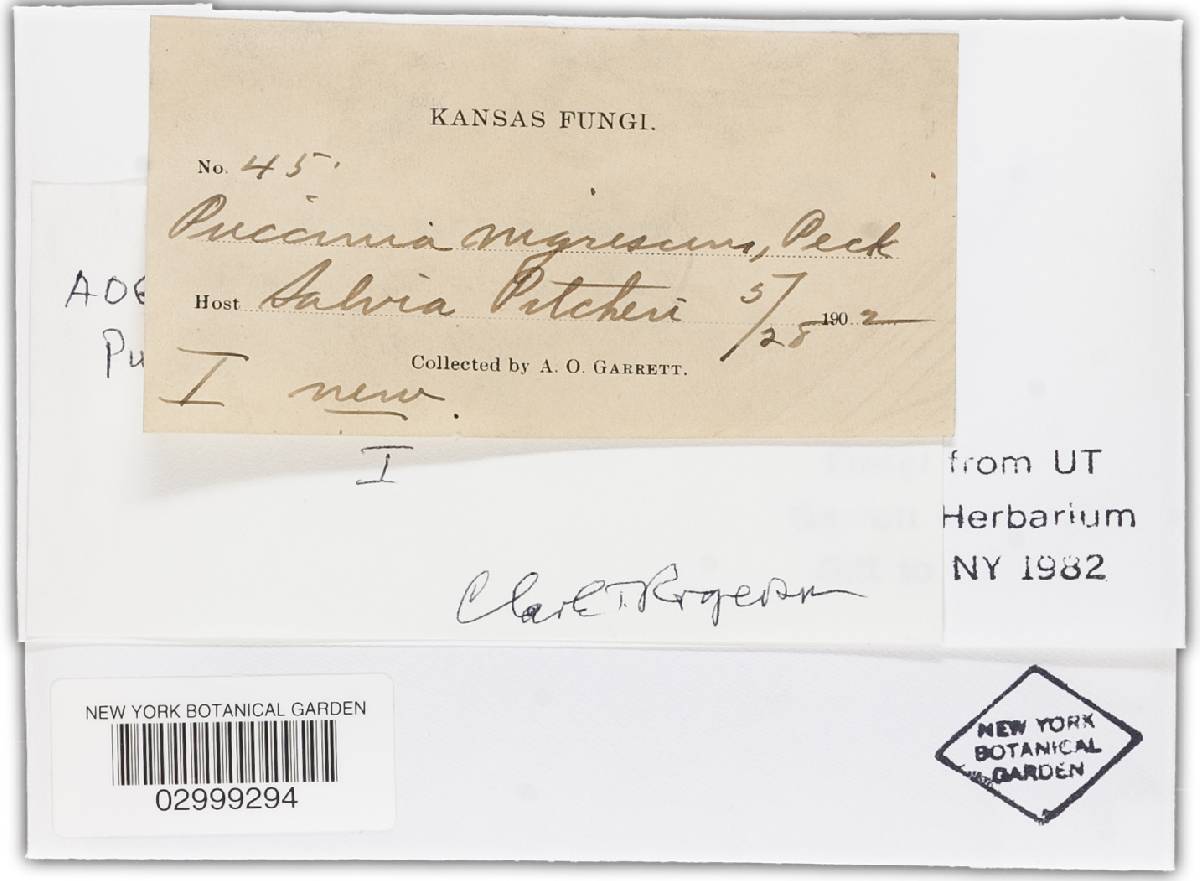 KANSAS FUNGI.
No. 45.
Puccinia nigrescens, Peck
Host Salvia Pitcheri 5/28 1902
Collected by A. O. GARRETT.
I new.
I
Pu
from UT
Herbarium
NY 1982
Clark T. Rogerson
NEW YORK BOTANICAL GARDEN
02999294
NEW YORK
BOTANICAL
GARDEN